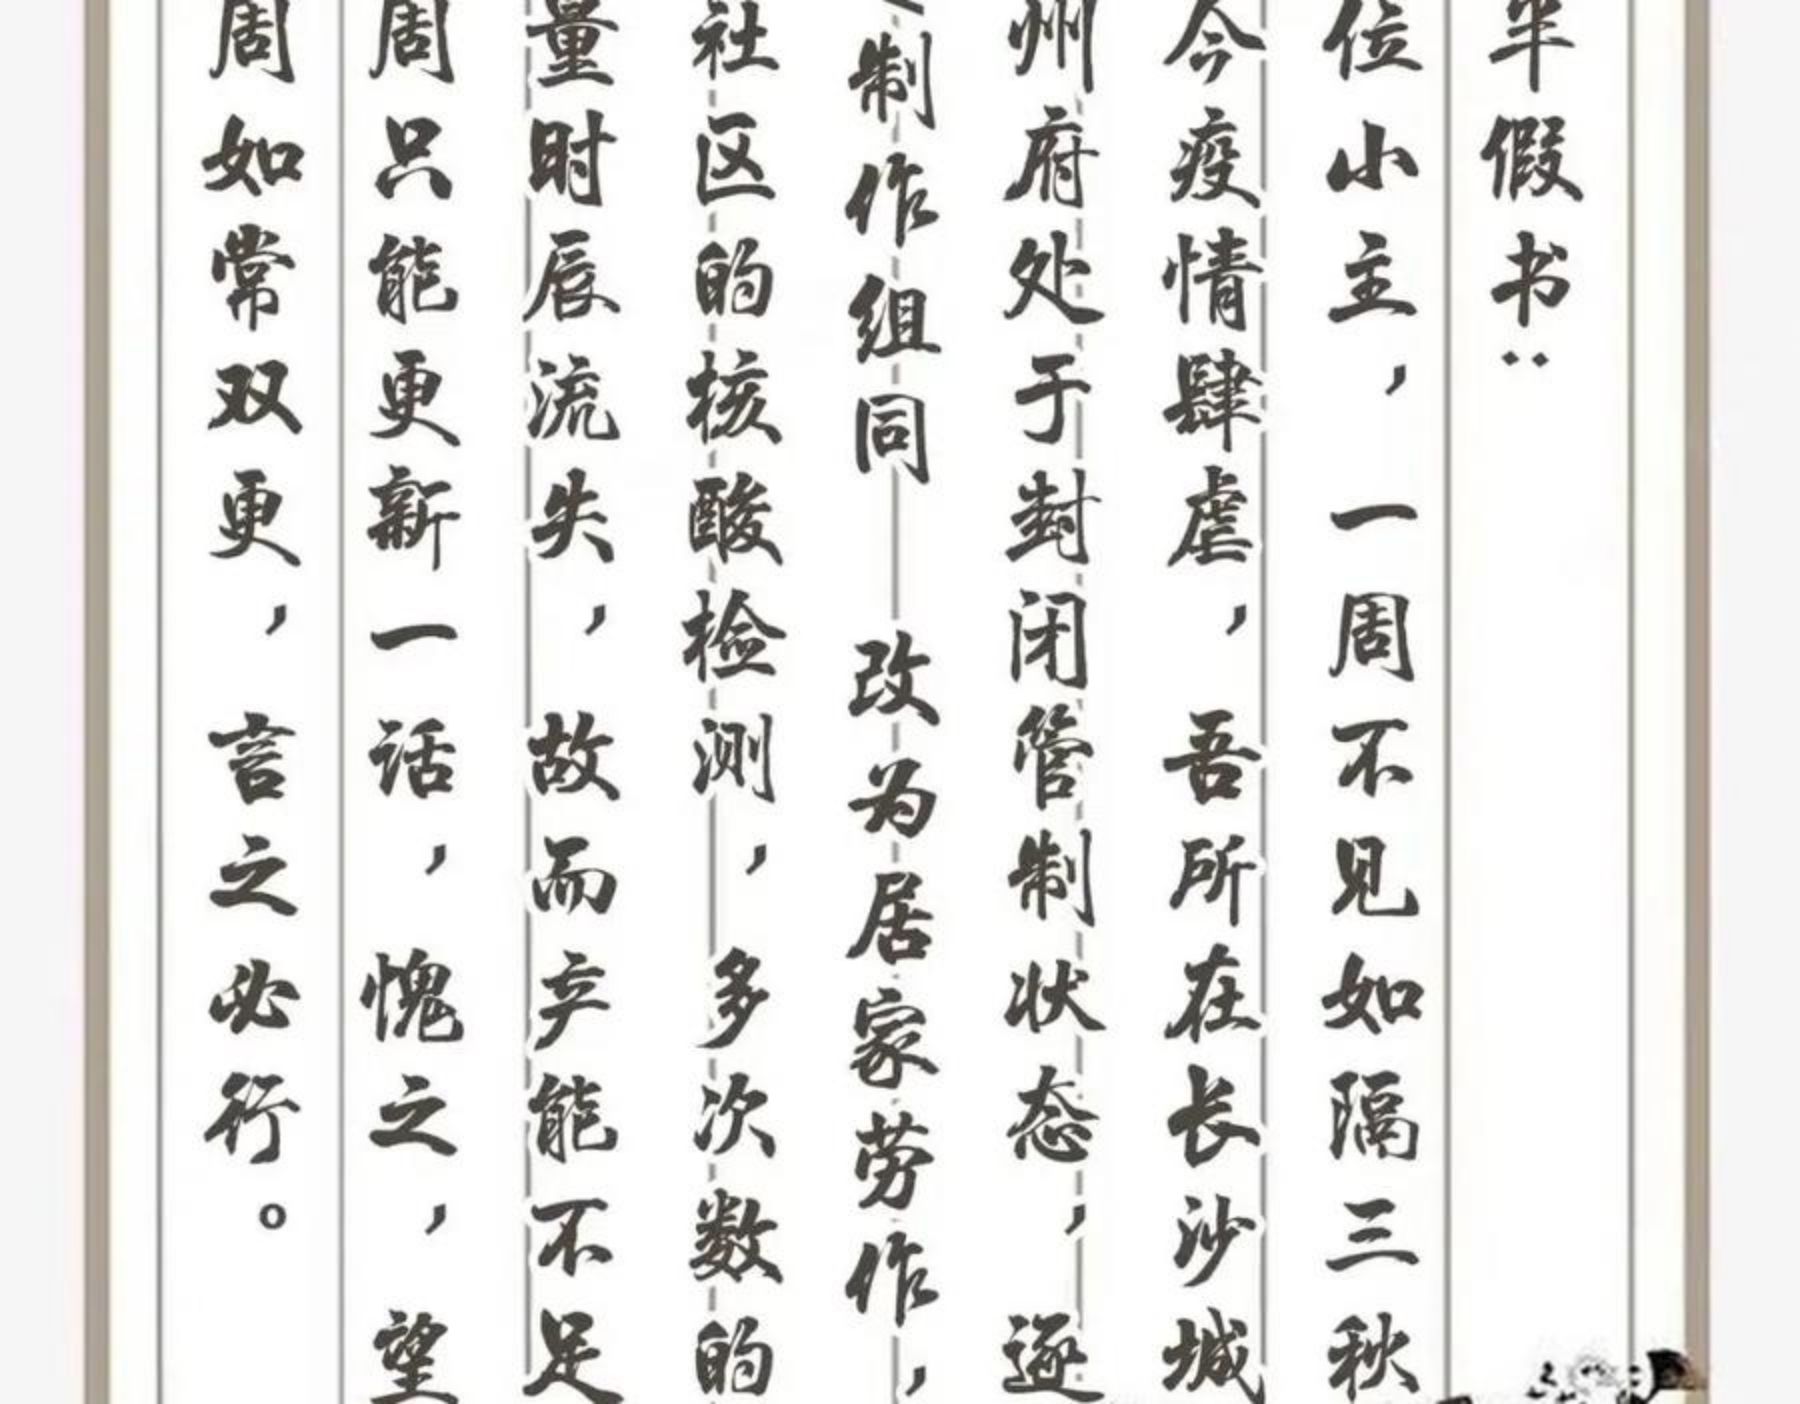 半假书：
位小主，一周不见如隔三秋
今疫情肆虐，吾所在长沙城
州府处于封闭管制状态，遂
制作组同 改为居家劳作，
社区的核酸检测，多次数的
量时辰流失，故而产能不足
周只能更新一话，愧之，望
周如常双更，言之必行。